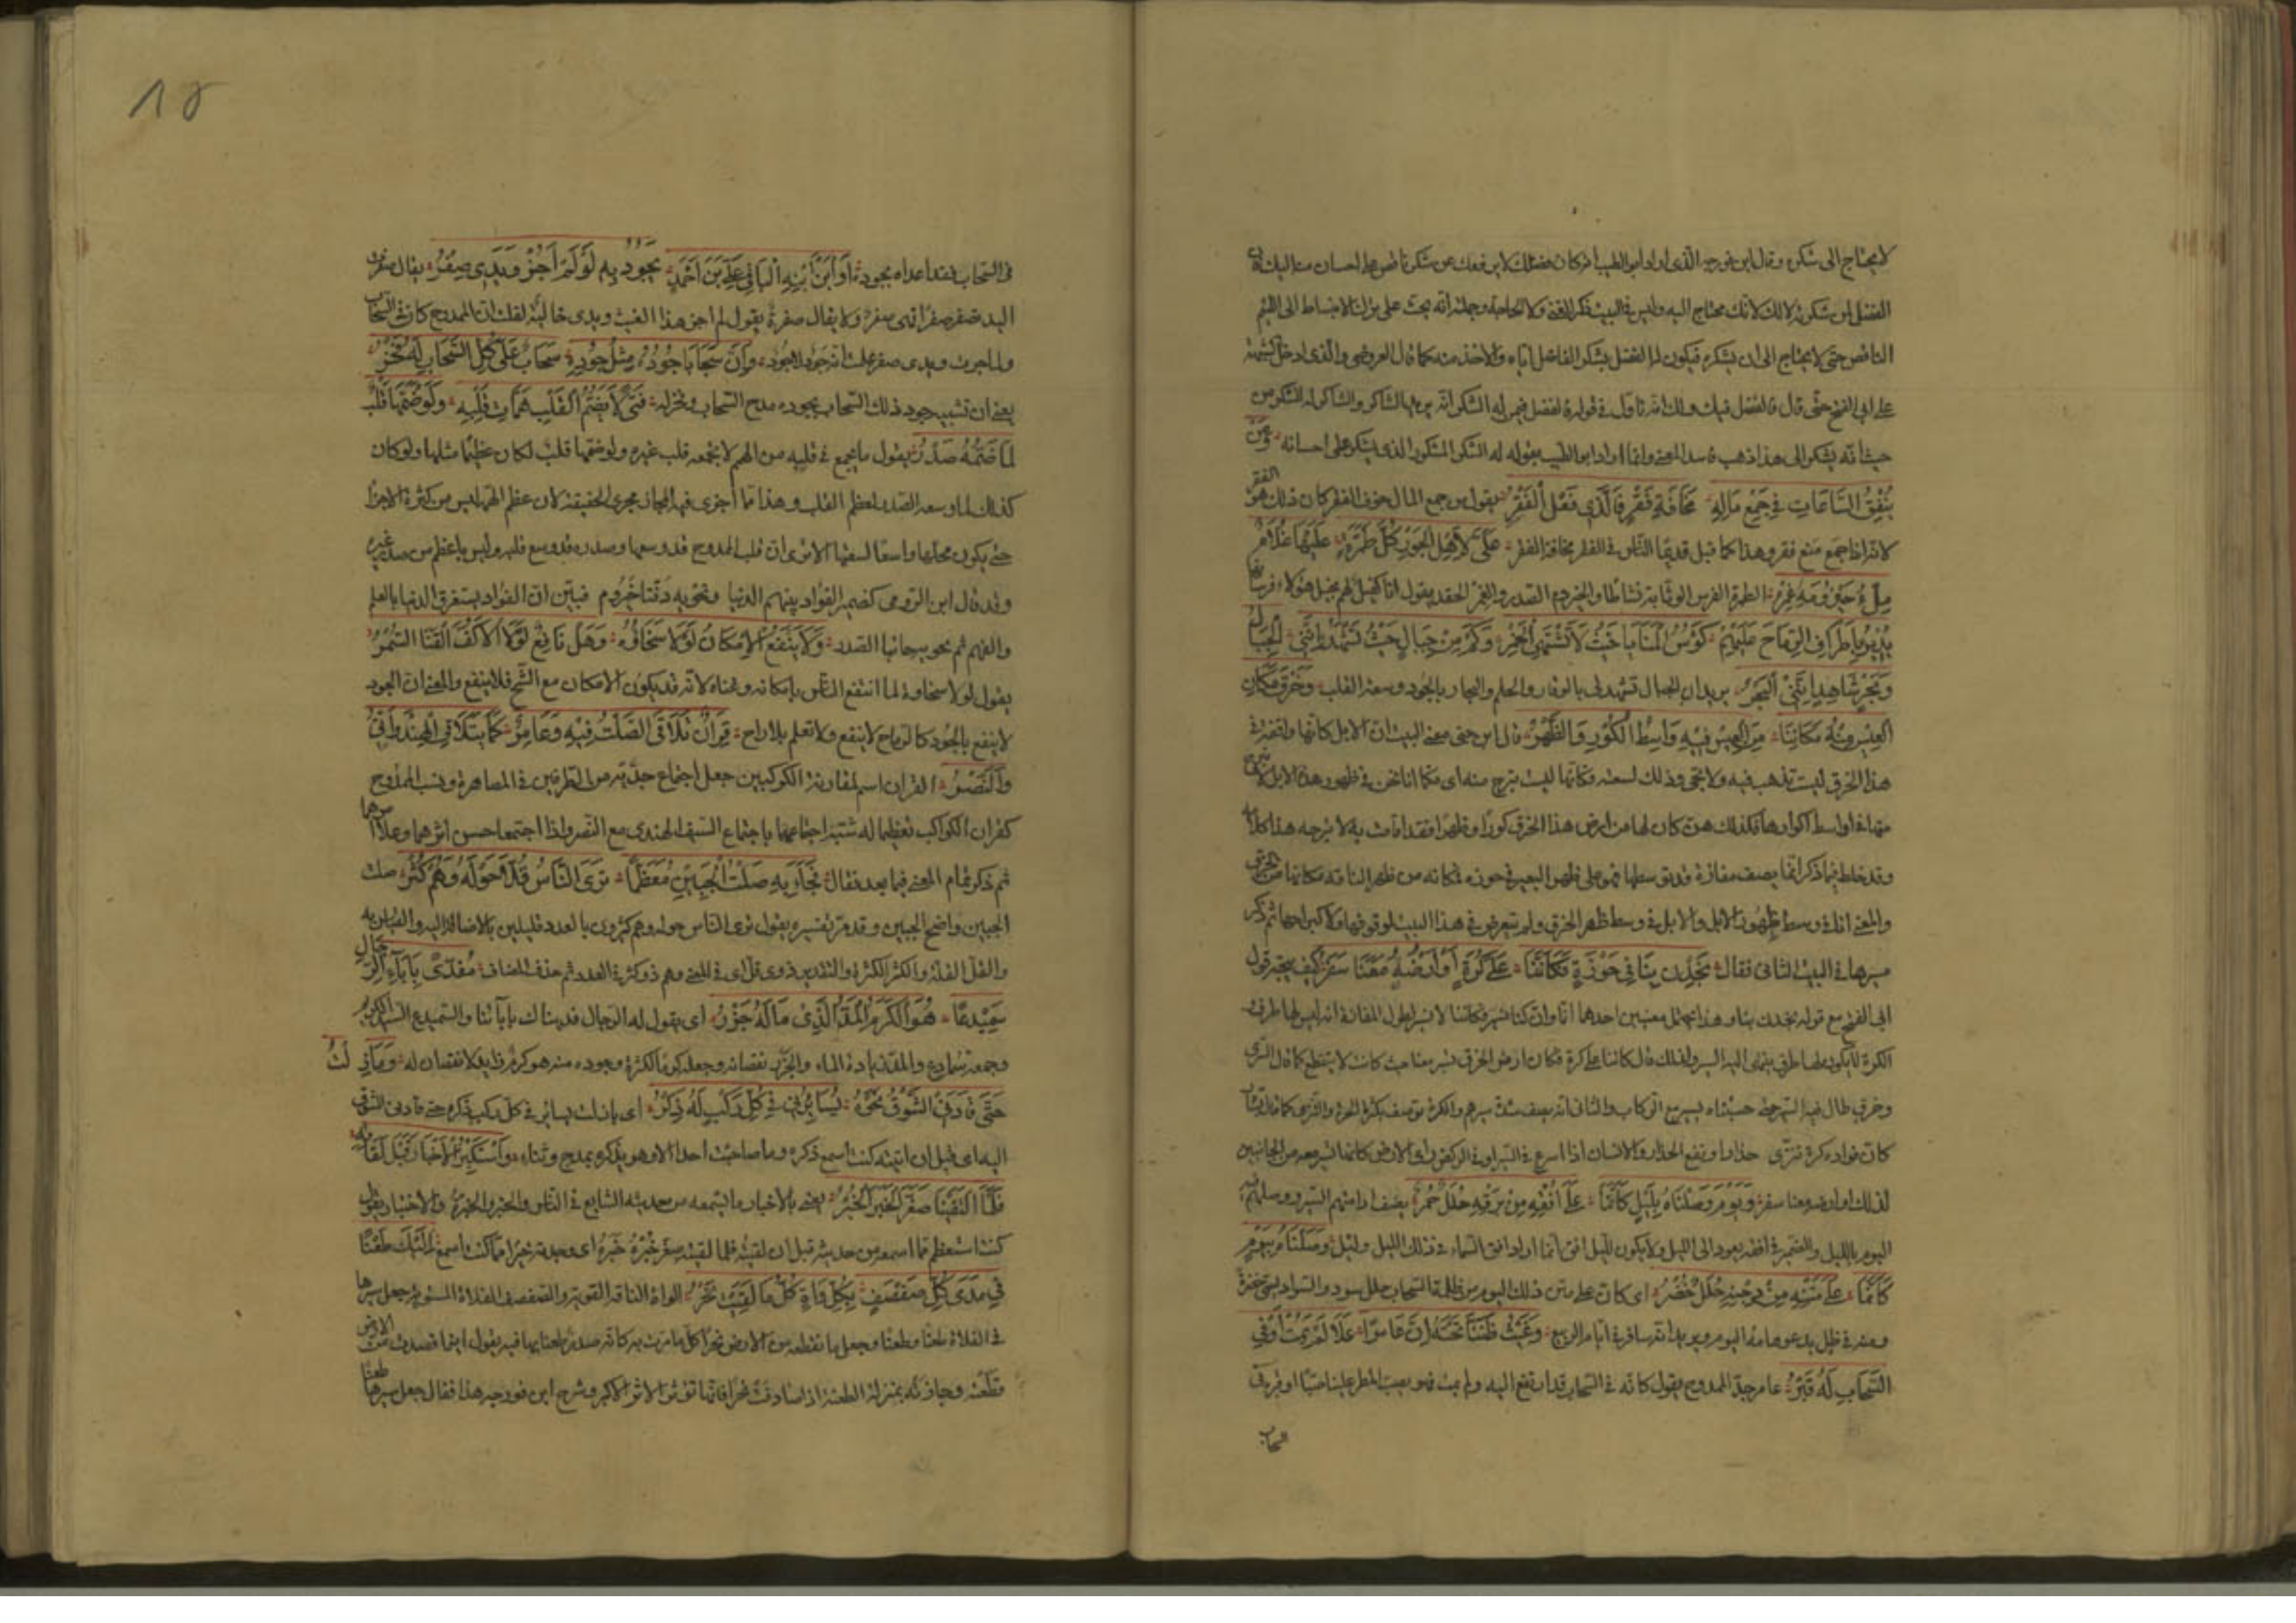 لا يحتاج الى شكره وقال ابن فورجه الذى اراد ابو الطيب انه كان فضلك لا يرفعك عن شكر ناقص على احسان منه اليك فان
الفضل لمن شكرته لا لك لانك محتاج اليه وليس فى البيت ذكر الغنى ولا الحاجة وجملته انه يحث على ترك الانبساط الى اللئيم
الناقص حتى لا يحتاج الى ان يشكره فيكون له الفضل يشكر الفاضل اياه والاخذ منه كما قال العروضى والذى ادخل الشبهة
على ابى الفتح حتى قال فالفضل فيك ولك انه تاول فى قوله فالفضل فيمن له الشكر انه يريد بها الشاكر والشاكر له الشكر من
حيث انه يشكر الى هذا ذهب فاسد المعنى وانما اراد ابو الطيب بقوله له الشكر المشكور الذى يشكر على احسانه وَمَن
يُنْفِقُ السَّاعَاتِ فِى جَمْعِ مَالِهِ مَخَافَةَ فَقْرٍ فَالَّذِى فَعَلَ الْفَقْرُ يقول من جمع المال خوف الفقر كان ذلك هو الفقر
لانه اذا جمع منع فقر وهذا كما قيل قديما الناس فى الفقر مخافة الفقر عَلَىَّ لِأَهْلِ الْجَوْرِ كُلُّ طِمِرَّةٍ عَلَيْهَا غُلَامٌ
مِلْءُ حَيْزُومِهِ غِمْرُ الطمرة الفرس الوثابة نشاطا والحيزوم الصدر والغمر الحقد يقول انا كفيل لهم بخيل هؤلاء فرسانها
يُدِيرُ بِأَطْرَافِ الرِّمَاحِ عَلَيْهِمْ كُؤُسَ الْمَنَايَا حَيْثُ لَا تُشْتَهَى الْخَمْرُ وَكَمْ مِنْ جِبَالٍ جُبْتُ تَشْهَدُ أَنَّنِى الْجِبَالُ
وَبَحْرٍ شَاهِدٍ أَنَّنِى الْبَحْرُ يريد ان الجبال تشهد لى بالوقار والحلم والبحار بالجود وسعة القلب وَخَرْقٍ مَكَانُ
الْعِيسِ مِنْهُ مَكَانُنَا مِنَ الْعِيسِ فِيهِ وَاسِطُ الْكُورِ وَالظَّهْرُ قال ابن جنى معنى البيت ان الابل كانها واقفة فى
هذا الخرق ليست تذهب فيه ولا تجئ وذلك لسعته فكانها ليست تبرح منه اى فكما انا نحن فى ظهور هذه الابل لا نبرح
منها فى اواسط اكوارها فكذلك هى كان لها من ارض هذا الخرق كورا وظهرا فقد اقامت به لا تبرحه هذا كلامه
وقد غلط فيما ذكر انما يصف مفازة قد توسطها فهو على ظهر البعير فى جوزه فمكانه من ظهر الناقة مكانها من الخرق
والمعنى انا فى وسط ظهور الابل والابل فى وسط ظهر الخرق ولم يتعرض فى هذا البيت لوقوفها ولا كبراحها ثم ذكر
سيرها فى البيت الثانى فقال يَخِدْنَ بِنَا فِى جَوْزِهِ فَكَأَنَّنَا عَلَى كُرَةٍ أَوْ أَرْضُهُ مَعَنَا سَفْرُ كيف يتجه قول
ابى الفتح مع قوله يخدن بنا وهذا يحتمل معنيين احدهما انا وان كنا نسير فكاننا لا نسير لطول المفازة انه ليس لها طرف
الكرة لا يكون لها طرف ينتهى اليه السير ولذلك قال كاننا على كرة فكان ارض الخرق تسير معنا حيث كانت لا تنقطع كما قال السرى
وخرق طال فيه السير حتى حسبناه يسير مع الركاب والثانى انه يصف شدة سيرهم والكرة توصف بكثرة الحركة والنزى كما قال بشار
كان فواده كرة تنزى حذارا ونفع الحذار والانسان اذا اسرع فى السير او فى الركض راى الارض كانها تسير معه من الجانبين
لذلك او ارضه معنا سفر وَيَوْمٍ وَصَلْنَاهُ بِلَيْلٍ كَأَنَّمَا عَلَى أُفْقِهِ مِنْ بَرْقِهِ حُلَلٌ حُمْرُ يصف ادامتهم السير ووصلهم
اليوم بالليل والضمير فى افقه يعود الى الليل ولا يكون لليل افق انما اراد افق السماء فى ذلك الليل وَلَيْلٍ وَصَلْنَاهُ بِيَوْمٍ
كَأَنَّمَا عَلَى مَتْنِهِ مِنْ دَجْنِهِ حُلَلٌ خُضْرُ اى كان على متن ذلك اليوم من ظلمة السحاب حلل سود والسواد يسمى خضرة
ومنه فى ظل يدعو هامه البوم ويريد انه سافر فى ايام الربيع وَغَيْثٍ ظَنَنَّا تَحْتَهُ أَنَّ عَامِرًا عَلَا لَمْ يَمُتْ أَوْ فِى
السَّحَابِ لَهُ قَبْرُ عامر جد الممدوح يقول كانه فى السحاب قد ارتفع اليه ولم يمت فهو يصب المطر علينا صبا او قبر فى
السحاب
١٥
فى السحاب فقد اعداه بجوده أَوِ ابْنَ ابْنِهِ الْبَاقِى عَلِىَّ بْنَ أَحْمَدٍ يَجُودُ بِهِ لَوْ لَمْ أَجُزْ وَيَدِى صِفْرُ يقال صفرت
اليد تصفر صفرا فهى صفر ولا يقال صفرة يقول لو لم اجز هذا الغيث ويدى خالية لقلت ان الممدوح كان فى السحاب
ولما جزت ويدى صفر علمت انه جود لا جوده وَأَنَّ سَحَابًا جُودُهُ مِثْلُ جُودِهِ سَحَابٌ عَلَى كُلِّ السَّحَابِ لَهُ فَخْرُ
يعنى ان تشبيه جود ذلك السحاب بجوده مدح السحاب وفخر له فَتًى لَا يَضُمُّ الْقَلْبُ هِمَّاتِ قَلْبِهِ وَلَوْ ضَمَّهَا قَلْبٌ
لَمَا ضَمَّهُ صَدْرُ يقول ما يجمع فى قلبه من الهمم لا يجمعه قلب غيره ولو ضمها قلب لكان عظيما مثلها ولو كان
كذلك لما وسعه الصدر لعظم القلب وهذا مما اجرى فيه المجاز مجرى الحقيقة لان عظم الهمة ليس من كثرة الاجزاء
حتى يكون محلها واسعا لسعتها الا ترى ان قلب الممدوح قد وسعها وصدره قد وسع قلبه وليس باعظم من صدر غيره
وقد قال ابن الرومى كضمير الفؤاد يلتهم الدنيا وتحويه دفتا حيزوم فبين ان الفؤاد يستغرق الدنيا بالعلم
والفهم ثم تحويه جانبا الصدر وَلَا يَنْفَعُ الْإِمْكَانُ لَوْلَا سَخَاؤُهُ وَهَلْ نَافِعٌ لَوْلَا الْأَكُفُّ الْقَنَا السُّمْرُ
يقول لولا سخاوه لما انتفع الناس بامكانه وغناه لانه قد يكون الامكان مع الشح فلا ينفع والمعنى ان الجود
لا ينفع بالجود كالرماح لا ينفع ولا تعلم بلا راح قِرَانٌ تَلَاقَى الصَّلْتُ فِيهِ وَعَامِرٌ كَمَا يَتَلَاقَى الْهِنْدُوَانِىُّ
وَالنَّصْرُ القران اسم لمقارنة الكوكبين جعل اجتماع جديه من الطرفين فى المصاهرة ونسب الممدوح
كقران الكواكب تعظيما له شبه اجتماعهما باجتماع السيف الهندى مع النصر واذا اجتمعا حسن اثرهما وعلا امرهما
ثم ذكر تمام المعنى فيما بعد فقال فَجَاآ بِهِ صَلْتَ الْجَبِينِ مُعَظَّمًا تَرَى النَّاسَ قُلًّا حَوْلَهُ وَهُمُ كُثْرُ صلت
الجبين واضح الجبين وقد مر تفسيره يقول ترى الناس حوله وهم كثيرون بالعدد قليلين بالاضافة اليه والقياس به
والقل القلة والكثر الكثرة والتقدير ذوى قل اى فى المعنى وهم ذو كثرة فى العدد ثم حذف المضاف مُفَدًّى بِآبَاءِ الرِّجَالِ
سَمَيْدَعًا هُوَ الْكَرَمُ الْمَدُّ الَّذِى مَا لَهُ جَزْرُ اى يقول له الرجال فديناك بابآئنا والسميدع السيد الكريم
وجمعه سمادع والمد زيادة الماء والجزر نقصانه وجعله كرما لكثرة وجوده منه هو كرم زايد لا نقصان له وَمَا زِلْتُ
حَتَّى قَادَنِى الشَّوْقُ نَحْوَهُ يُسَايِرُنِى فِى كُلِّ رَكْبٍ لَهُ ذِكْرُ اى ما زلت يسايرنى فى كل ركب ذكره حتى قادنى الشوق
اليه اى قبل ان اتيته كنت اسمع ذكره وما صاحبت احدا الا وهو يذكره بمدح وثناء وَأَسْتَكْبِرُ الْأَخْبَارَ قَبْلَ لِقَائِهِ
فَلَمَّا الْتَقَيْنَا صَغَّرَ الْخَبَرَ الْخُبْرُ يعنى بالاخبار ما يسمعه من حديثه الشايع فى الناس والخبر والخبرة والاختبار يقول
كنت استعظم ما اسمعه من حديثه قبل ان لقيته فلما لقيته صغر خبره خبره اى وجدته خيرا مما كنت اسمع إِلَيْكَ طَعَنَّا
فِى مَدَى كُلِّ صَفْصَفٍ بِكُلِّ وَآةٍ كُلُّ مَا لَقِيَتْ نَحْرُ الواة الناقة القوية والصفصف الفلاة المستوية جعل سيرها
فى الفلاة طعنا وطعنا وجعل ما تقطعه من الارض نحرا كل ما مرت به كانه صدر طعنا بها فيه يقول اينما قصدت من الارض
قطعته وجازته بمنزلة الطعنة اذا صادفت نحرا فانها تؤثر الاثر الاكبر وشرح ابن فورجه هذا فقال جعل سيرها طعنا